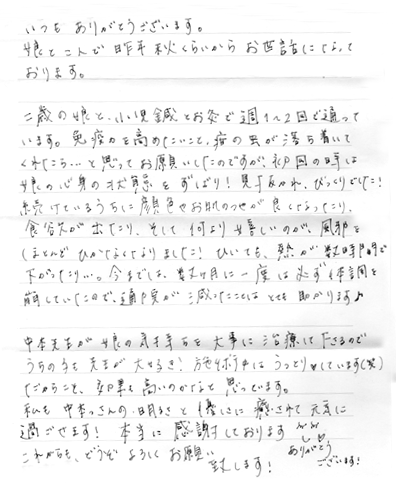 いつも ありがとうございます。
娘と二人で昨年秋くらいからお世話になって
おります。
二歳の娘と、小児鍼とお灸で週1〜2回で通って
います。免疫力を高めたいこと、疳の虫が落ち着いて
くれたら…と思ってお願いしたのですが、初回の時は
娘の心身の状態をずばり!見ぬかれ、びっくりでした!
続けているうちに顔色やお肌のつやが良くなったり、
食谷欠が出たり、そして何より嬉しいのが、風邪を
ほとんどひかなくなりました!ひいても、熱が数時間で
下がったり…。今までは、数ヶ月に一度は必ず体調を
崩していたので、通院が減ったことはとても助かります♪
中本先生が娘の気持ちを大事に治療して下さるので
うちの子も先生が大好き!施術中はうっとり♥しています(笑)
だからこそ、効果も高いのかなと思っています。
私も中本さんの明るさと優しさに癒されて元気に
過ごせます!本当に感謝しております
これからも、どうぞよろしくお願い
致します!
ありがとう
ございます!